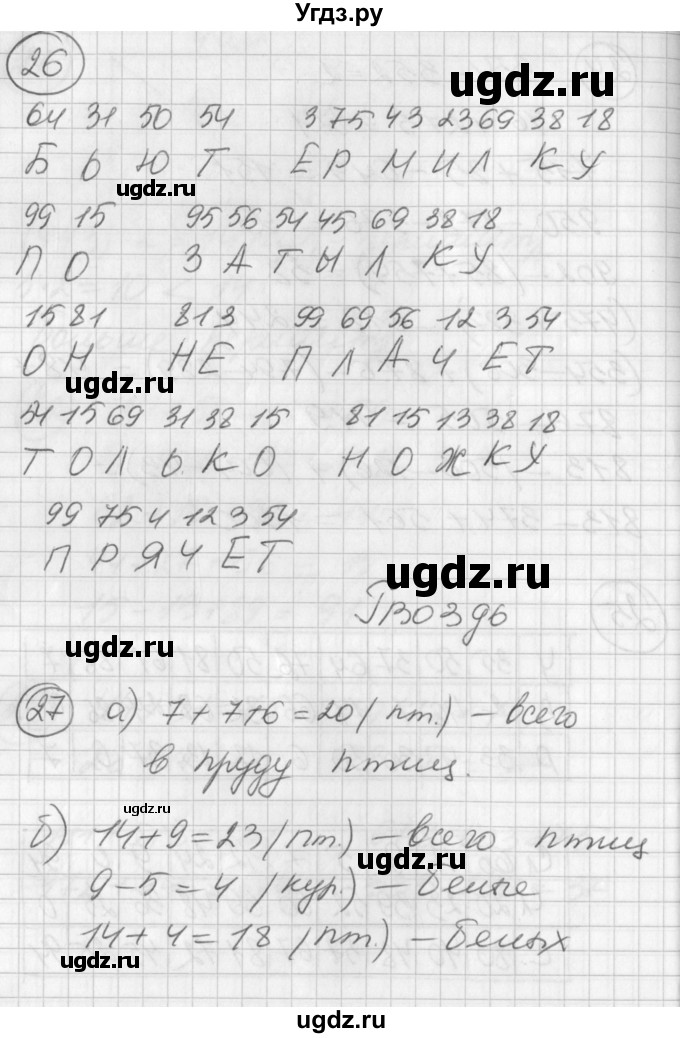 Угдз.ру
26
ugdz.ru
64 31 50 54 3 75 43 23 69 38 18
Б Ь Ю Т Е Р М И Л К У
ugdz.ru
99 15 95 56 54 45 69 38 18
П О З А Т Ы Л К У
15 81 81 3 99 69 56 12 3 54
О Н Н Е П Л А Ч Е Т
ugdz.ru
54 15 69 31 38 15 81 15 13 38 18
Т О Л Ь К О Н О Ж К У
99 75 4 12 3 54
П Р Я Ч Е Т
ugdz.ru
Гвоздь
ugdz.ru
27 а) 7 + 7 + 6 = 20 (пт.) – всего
в пруду птиц.
ugdz.ru
б) 14 + 9 = 23 (пт.) – всего птиц
ugdz.ru
9 – 5 = 4 (кур.) – белые
14 + 4 = 18 (пт.) – белых
ugdz.ru
ugdz.ru